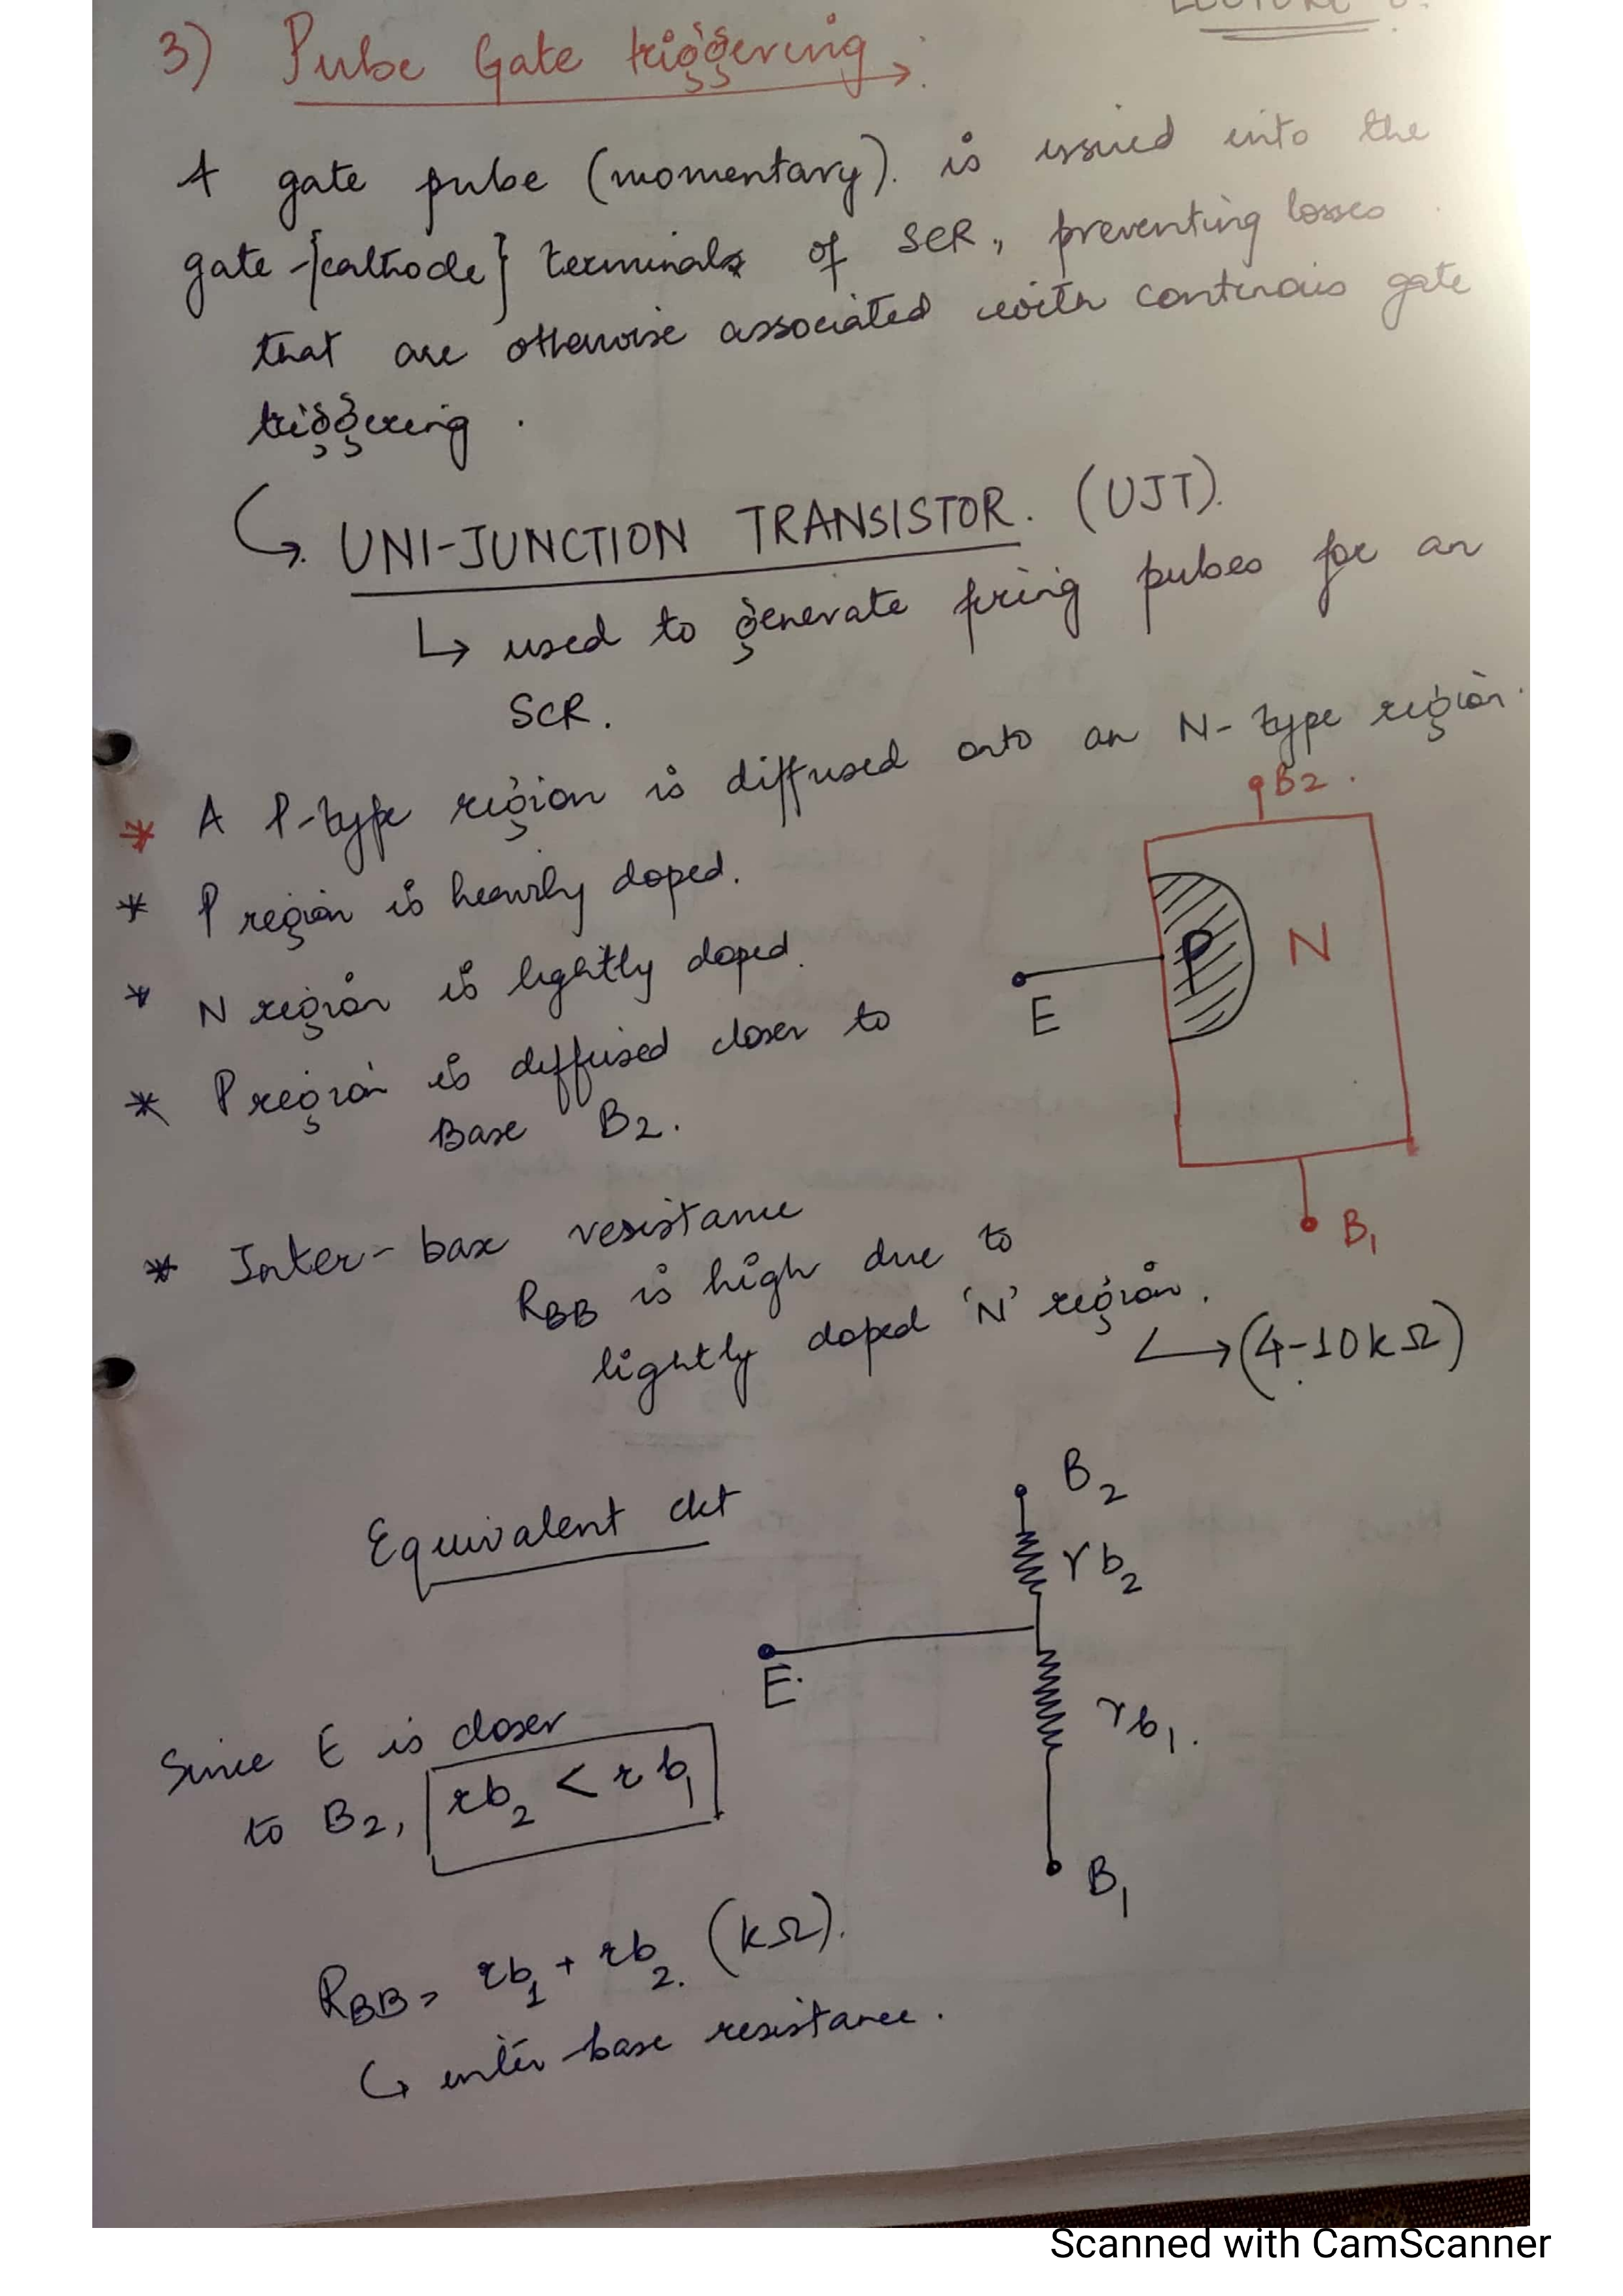 3) Pulse Gate triggering
A gate pulse (momentary). is issued into the
gate-{cathode} terminals of SCR, preventing losses
that are otherwise associated with continous gate
triggering.
UNI-JUNCTION TRANSISTOR. (UJT).
↳ used to generate firing pulses for an
SCR.
* A P-type region is diffused onto an N-type region.
B2.
* P region is heavily doped.
P N
* N region is lightly doped.
E
* P region is diffused closer to
Base B2.
B1
* Inter-base resistance
RBB is high due to
lightly doped 'N' region.
↳ (4-10kΩ)
Equivalent ckt
B2
rb2
E.
rb1.
B1
Since E is closer
to B2, rb2 < rb1
RBB = rb1 + rb2. (kΩ).
↳ inter-base resistance.
Scanned with CamScanner